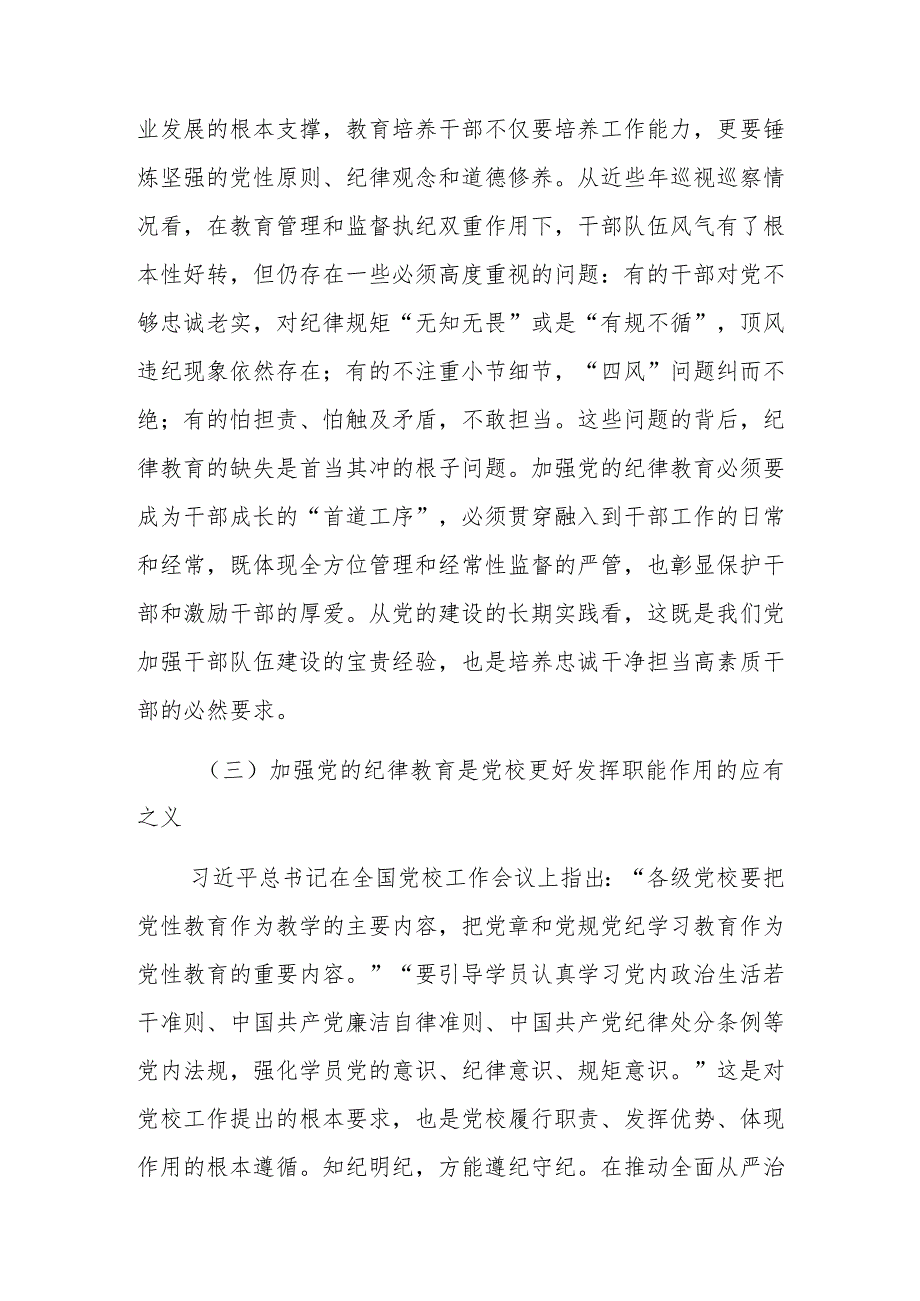 业发展的根本支撑，教育培养干部不仅要培养工作能力，更要锤
炼坚强的党性原则、纪律观念和道德修养。从近些年巡视巡察情
况看，在教育管理和监督执纪双重作用下，干部队伍风气有了根
本性好转，但仍存在一些必须高度重视的问题：有的干部对党不
够忠诚老实，对纪律规矩“无知无畏”或是“有规不循”，顶风
违纪现象依然存在；有的不注重小节细节，“四风”问题纠而不
绝；有的怕担责、怕触及矛盾，不敢担当。这些问题的背后，纪
律教育的缺失是首当其冲的根子问题。加强党的纪律教育必须要
成为干部成长的“首道工序”，必须贯穿融入到干部工作的日常
和经常，既体现全方位管理和经常性监督的严管，也彰显保护干
部和激励干部的厚爱。从党的建设的长期实践看，这既是我们党
加强干部队伍建设的宝贵经验，也是培养忠诚干净担当高素质干
部的必然要求。
（三）加强党的纪律教育是党校更好发挥职能作用的应有
之义
习近平总书记在全国党校工作会议上指出：“各级党校要把
党性教育作为教学的主要内容，把党章和党规党纪学习教育作为
党性教育的重要内容。”“要引导学员认真学习党内政治生活若
干准则、中国共产党廉洁自律准则、中国共产党纪律处分条例等
党内法规，强化学员党的意识、纪律意识、规矩意识。”这是对
党校工作提出的根本要求，也是党校履行职责、发挥优势、体现
作用的根本遵循。知纪明纪，方能遵纪守纪。在推动全面从严治